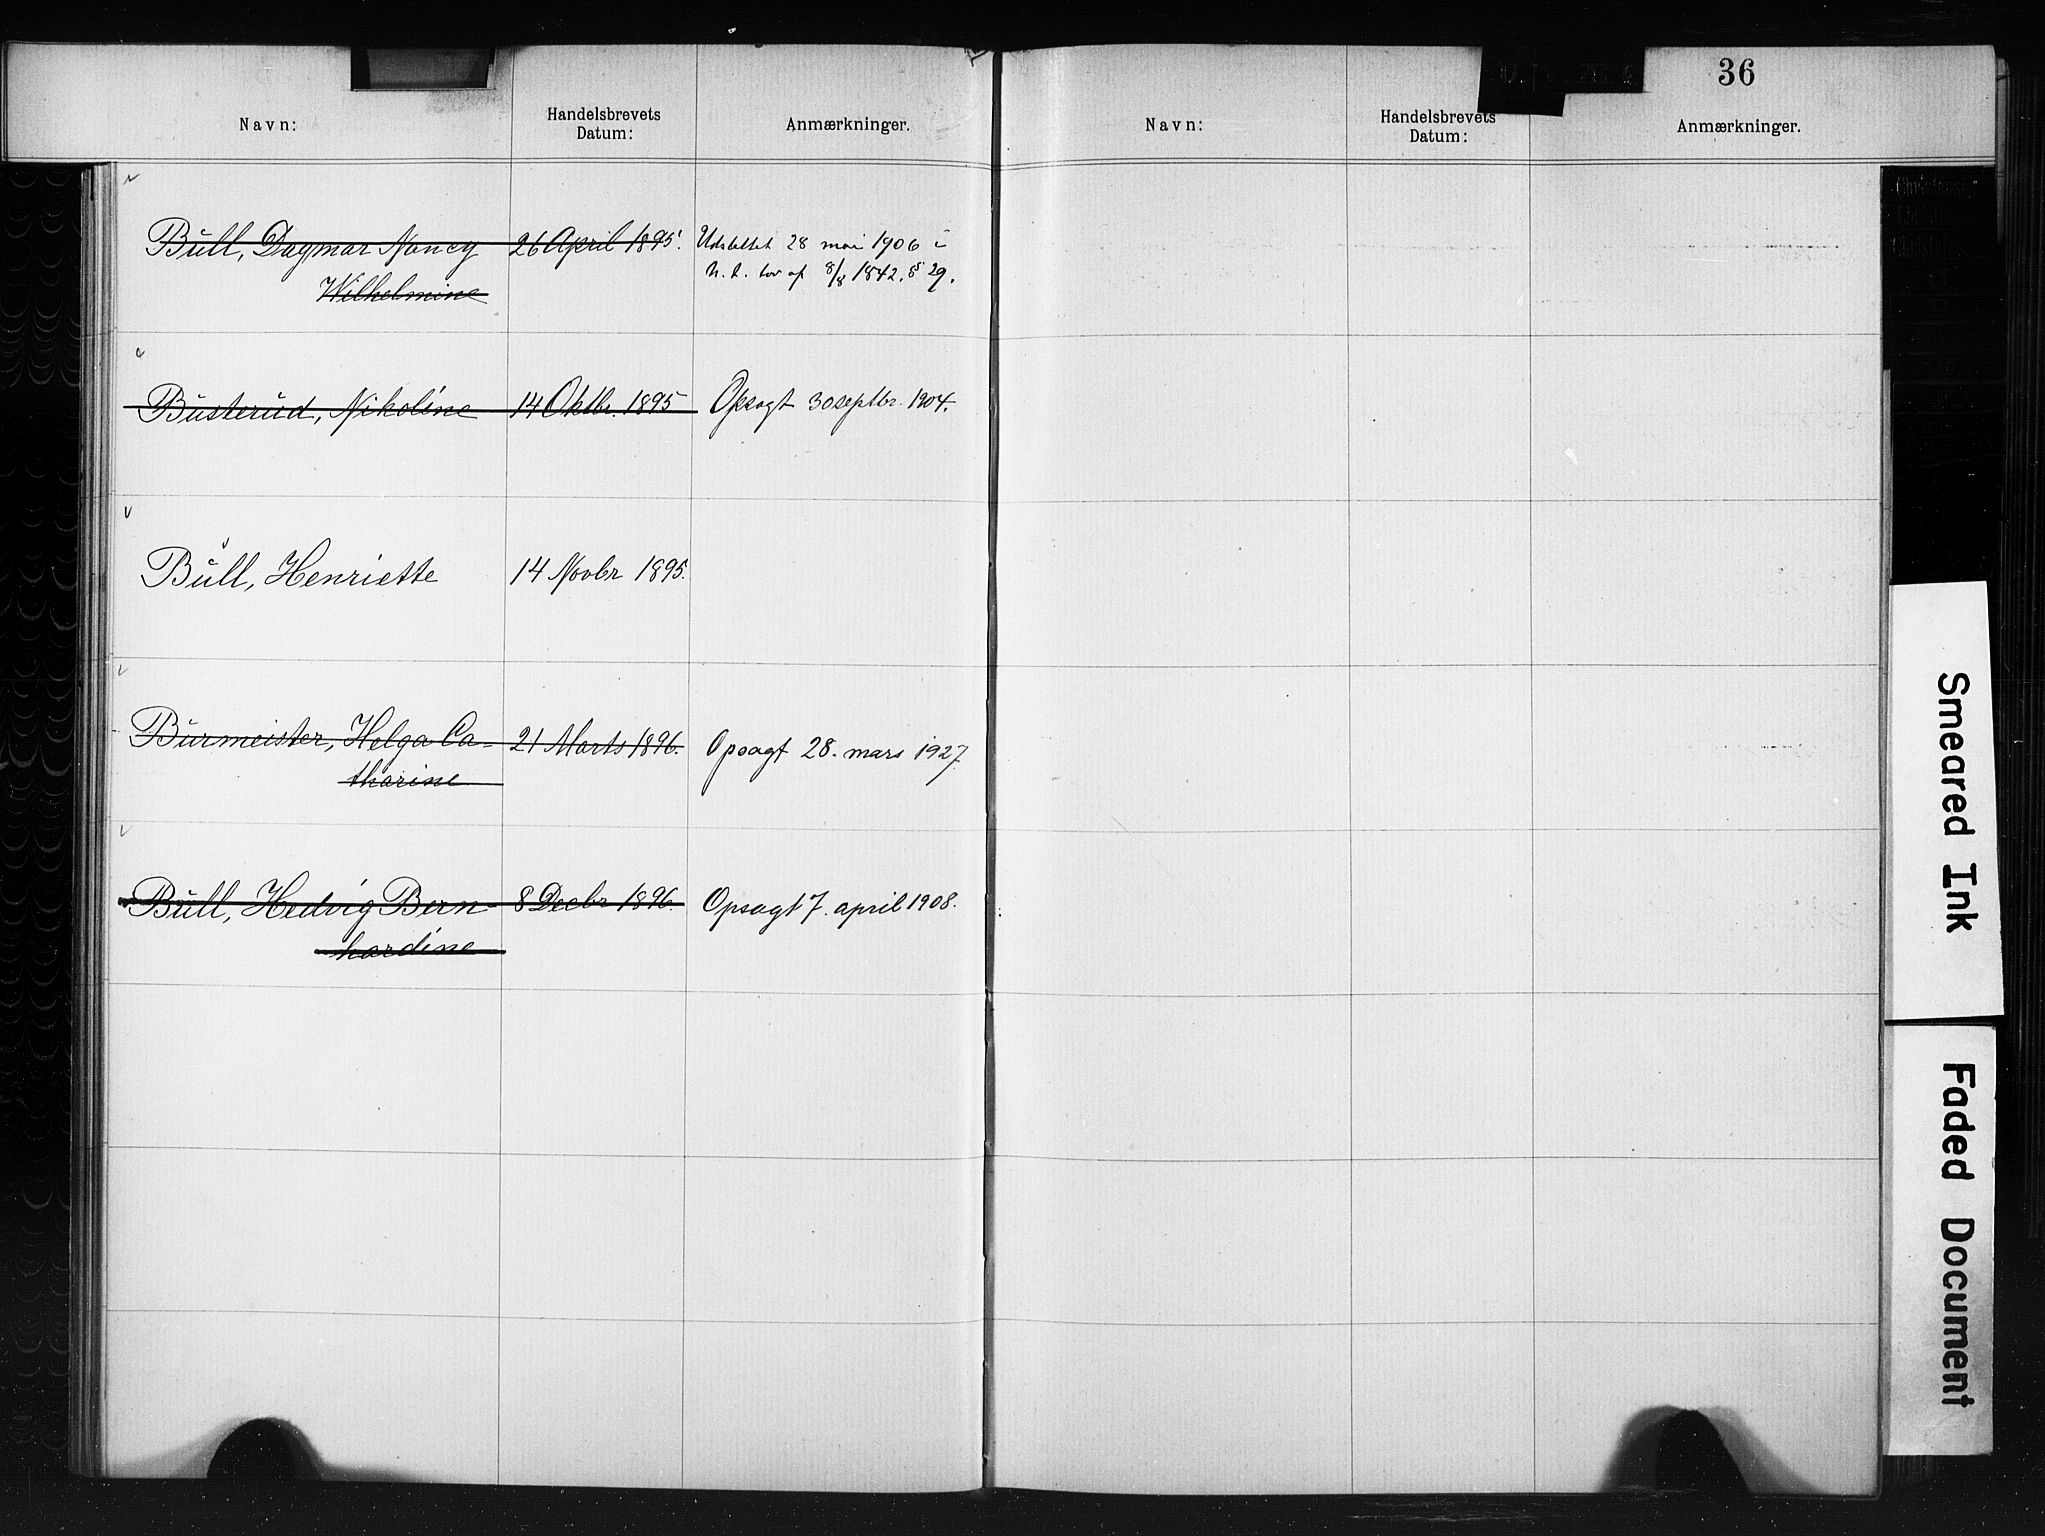 Navn:
Handelsbrevets
Datum:
Anmærkninger.
Bull, Dagmar Nancy 26 April 1895. Udslettet 28 mai 1906 i
Wilhelmine h. t. lov af 8/8 1842, § 29.
Busterud, Nikoline 14 Oktbr. 1895 Opsagt 30 septbr. 1904.
Bull, Henriette 14 Novbr 1895.
Burmeister, Helga Ca- 21 Marts 1896. Opsagt 28. mars 1927
tharine
Bull, Hedvig Bern- 8 Decbr 1896. Opsagt 7. april 1908.
hardine
36
Navn:
Handelsbrevets
Datum:
Anmærkninger.
Smeared Ink
Faded Document